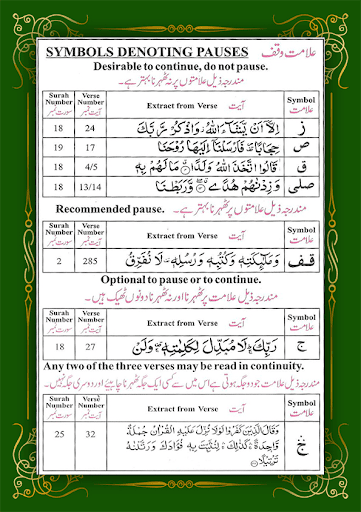 SYMBOLS DENOTING PAUSES علامت وقف
Desirable to continue, do not pause.
مندرجہ ذیل علامتوں پر نہ ٹھہرنا بہتر ہے۔
Surah Number سورت نمبر Verse Number آیت نمبر Extract from Verse آیت Symbol علامت
18 24 اِلَّآ اَنْ يَّشَآءَ اللّٰهُ وَاذْكُرْ رَّبَّكَ ز
19 17 حِجَابًا فَاَرْسَلْنَآ اِلَيْهَا رُوْحَنَا ص
18 4/5 قَالُوا اتَّخَذَ اللّٰهُ وَلَدًا ق مَا لَهُمْ بِهٖ ق
18 13/14 وَزِدْنٰهُمْ هُدًى وَّرَبَطْنَا صلى
Recommended pause. مندرجہ ذیل علامتوں پر ٹھہرنا بہتر ہے۔
Surah Number سورت نمبر Verse Number آیت نمبر Extract from Verse آیت Symbol علامت
2 285 وَمَلٰٓئِكَتِهٖ وَكُتُبِهٖ وَرُسُلِهٖ لَا نُفَرِّقُ قف
Optional to pause or to continue.
مندرجہ ذیل علامت پر ٹھہرنا اور نہ ٹھہرنا دونوں ٹھیک ہیں۔
Surah Number سورت نمبر Verse Number آیت نمبر Extract from Verse آیت Symbol علامت
18 27 رَبِّكَ لَا مُبَدِّلَ لِكَلِمٰتِهٖ وَلَنْ ج
Any two of the three verses may be read in continuity.
مندرجہ ذیل علامت جو دو جگہ ہوتی ہے اس میں سے کسی ایک جگہ ٹھہرنا چاہیے اور دوسری جگہ نہیں۔
Surah Number سورت نمبر Verse Number آیت نمبر Extract from Verse آیت Symbol علامت
25 32 وَقَالَ الَّذِيْنَ كَفَرُوْا لَوْلَا نُزِّلَ عَلَيْهِ الْقُرْاٰنُ جُمْلَةً
وَّاحِدَةً كَذٰلِكَ لِنُثَبِّتَ بِهٖ فُؤَادَكَ وَرَتَّلْنٰهُ
تَرْتِيْلًا